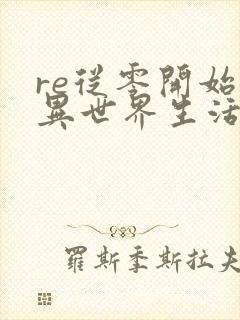 re從零開始
異世界生活
羅斯季斯拉夫